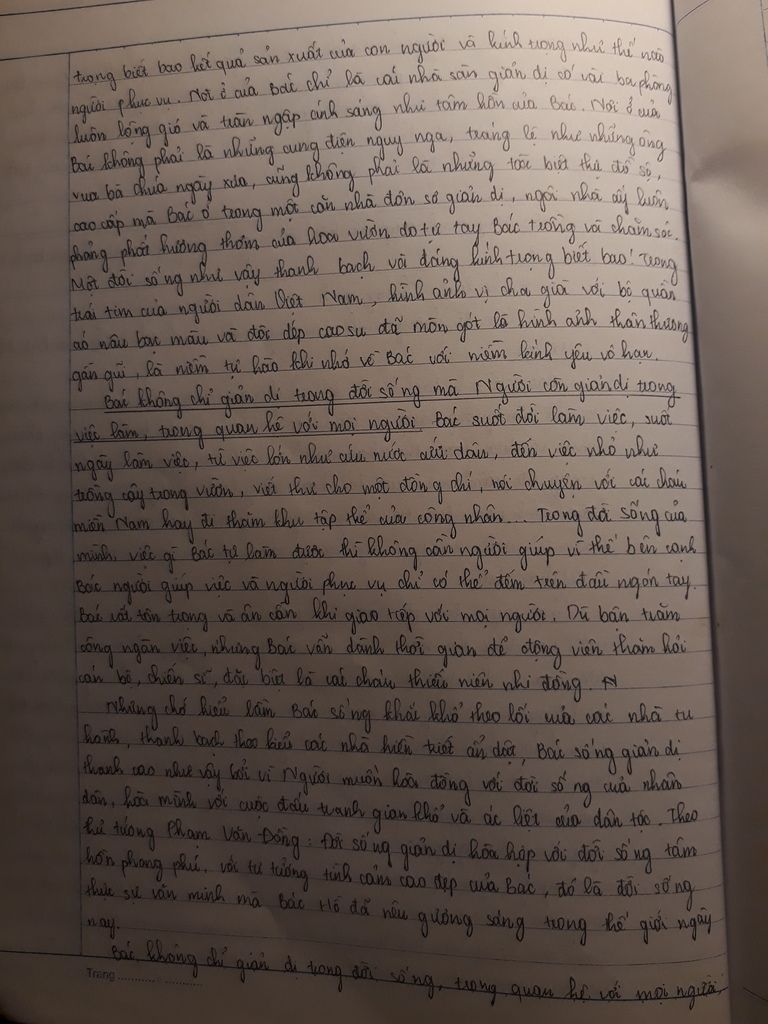 trọng biết bao kết quả sản xuất của con người và kính trọng như thế nào
người phục vụ. Nơi ở của Bác chỉ là cái nhà sàn giản dị có vài ba phòng
luôn lộng gió và tràn ngập ánh sáng như tâm hồn của Bác. Nơi ở của
Bác không phải là những cung điện nguy nga, tráng lệ như những ông
vua bà chúa ngày xưa, cũng không phải là những tòa biệt thự đồ sộ,
cao cấp mà Bác ở trong một căn nhà đơn sơ giản dị, ngôi nhà ấy luôn
phảng phất hương thơm của hoa vườn do tự tay Bác trồng và chăm sóc.
Một đời sống như vậy thanh bạch và đáng kính trọng biết bao! Trong
trái tim của người dân Việt Nam, hình ảnh vị cha già với bộ quần
áo nâu bạc màu và đôi dép cao su đã mòn gót là hình ảnh thân thương
gần gũi, là niềm tự hào khi nhớ về Bác với niềm kính yêu vô hạn.
Bác không chỉ giản dị trong đời sống mà Người còn giản dị trong
việc làm, trong quan hệ với mọi người. Bác suốt đời làm việc, suốt
ngày làm việc, từ việc lớn như cứu nước cứu dân, đến việc nhỏ như
trồng cây trong vườn, viết thư cho một đồng chí, nói chuyện với các cháu
miền Nam hay đi thăm khu tập thể của công nhân... Trong đời sống của
mình, việc gì Bác tự làm được thì không cần người giúp vì thế bên cạnh
Bác người giúp việc và người phục vụ chỉ có thể đếm trên đầu ngón tay.
Bác rất tôn trọng và ân cần khi giao tiếp với mọi người. Dù bận trăm
công ngàn việc, nhưng Bác vẫn dành thời gian để động viên thăm hỏi
cán bộ, chiến sĩ, đặc biệt là các cháu thiếu niên nhi đồng. N
Nhưng chớ hiểu lầm Bác sống khắc khổ theo lối của các nhà tu
hành, thanh bạch theo kiểu các nhà hiền triết ẩn dật, Bác sống giản dị
thanh cao như vậy bởi vì Người muốn hòa đồng với đời sống của nhân
dân, hòa mình với cuộc đấu tranh gian khổ và ác liệt của dân tộc. Theo
thủ tướng Phạm Văn Đồng: Đời sống giản dị hòa hợp với đời sống tâm
hồn phong phú, với tư tưởng tình cảm cao đẹp của Bác, đó là đời sống
thực sự văn minh mà Bác Hồ đã nêu gương sáng trong thế giới ngày
nay.
Bác không chỉ giản dị trong đời sống, trong quan hệ với mọi người,
Trang ...........